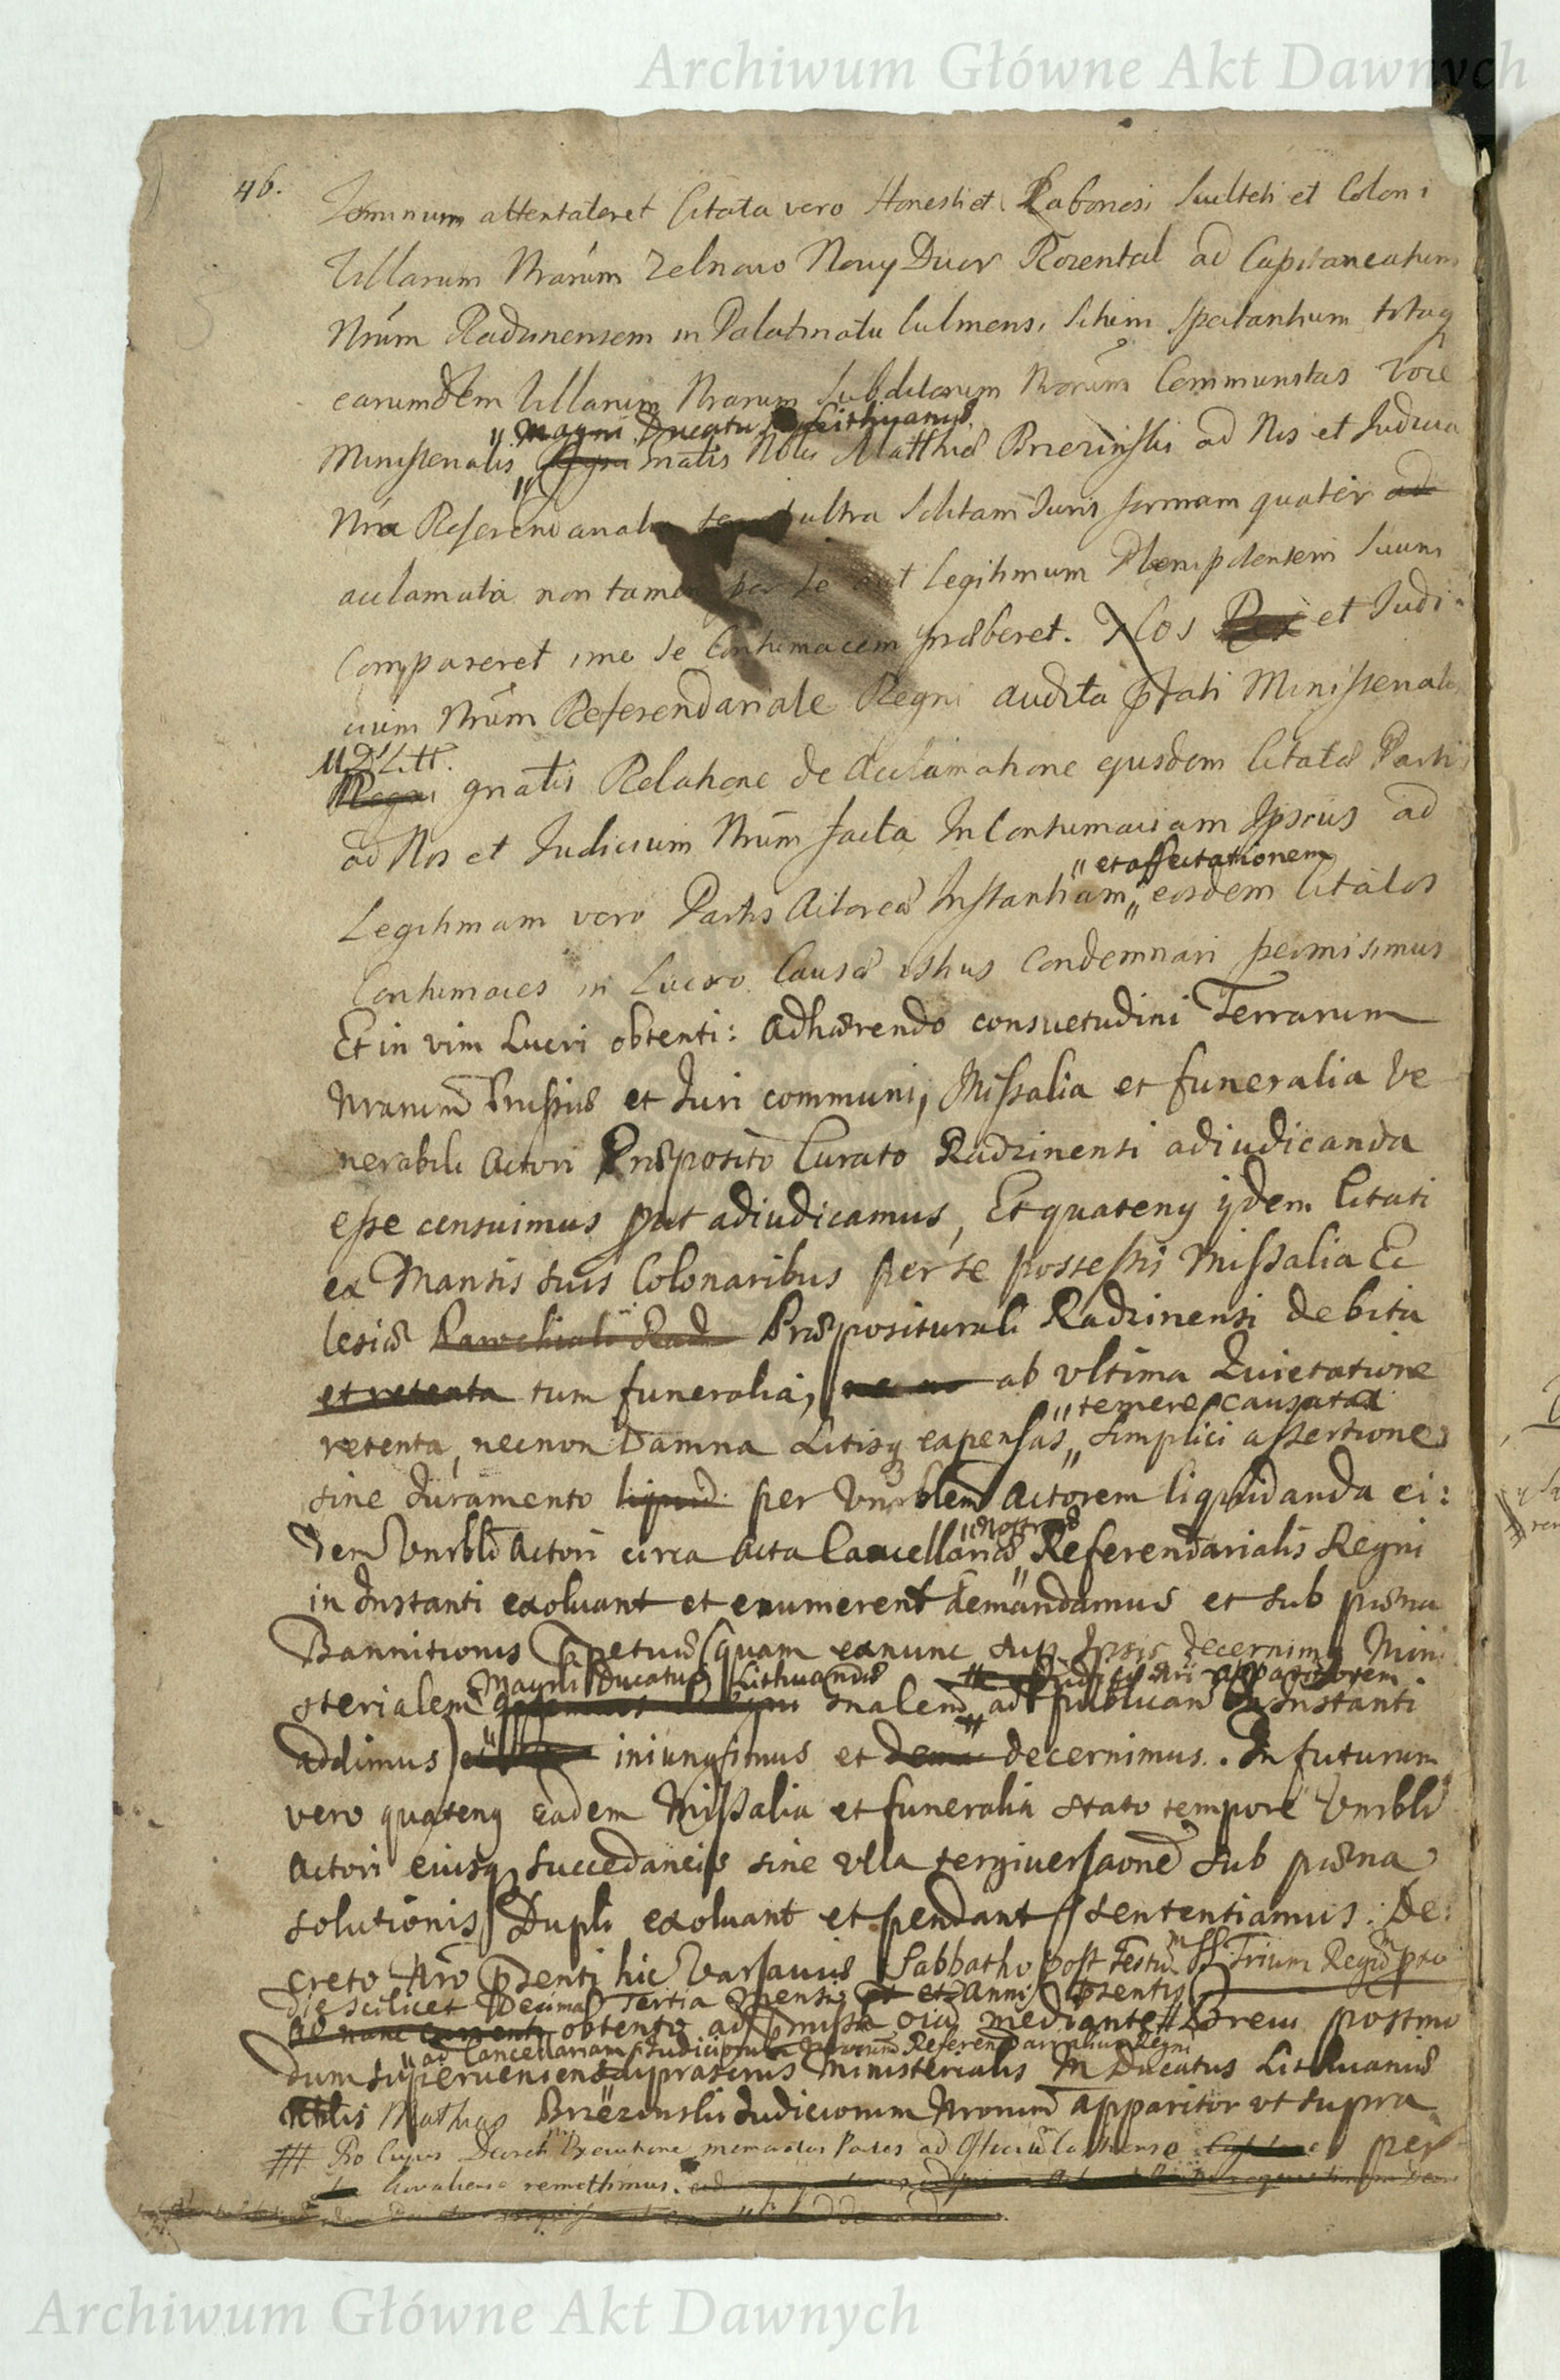 Archiwum Główne Akt Dawnych
46.
Terminum attentaret Citata vero Honesti et Laboriosi Sculteti et Coloni
Villarum Nrarum Zelnowo Nowy Dwor Rozental ad Capitaneatum
Nrum Radzinensem in Palatinatu Culmensi Situm spectantium totaq
earumdem Villarum Nrarum Subditorum Nrorum Communitas Voce
" Magni Ducatus Lithuaniæ
Ministerialis Gnalis Nobis Matthiæ Brzezinski ad Nos et Judicia
Nra Referendarialia ultra Solitam Juris formam quater ad
acclamata non tamen per se aut legitimum Plenipotentem Suum
Compareret imo se Contumacem præberet. Nos Rex et Judi-
cium Nrum Referendariale Regni audita pfati Ministerialis
M D Litt.
Regni gnalis Relatione de acclamatione ejusdem Citatæ Partis
ad Nos et Judicium Nrum facta In Contumaciam Ipsius ad
" et affectationem
Legitimam vero Partis Actoreæ Instantiam " eosdem Citatos
Contumaces in Lucro Causæ istius Condemnari permisimus
Et in vim Lucri obtenti: adhærendo consuetudini Terrarum
Nrarum Prussiæ et Juri communi, Missalia et funeralia Ve
nerabili Actori Præposito Curato Radzinensi adiudicanda
esse censuimus put adiudicamus, Et quateny ijdem Citati
ex Mansis suis Colonaribus per se possessis Missalia Ec
lesiæ Parochiali Rad Præpositurali Radzinensi debita
et retenta tum funeralia, ab ultima Quietatione
" temere causatas
retenta, necnon Damna Litisq expensas " simplici assertione
sine Juramento liquid per Vnrblem Actorem liquidanda ei:
" Nostræ
dem Vnrbli Actori circa Acta Cancellariæ " Referendarialis Regni
in Instanti exoluant et enumerent demandamus et sub pæna
Bannitionis Ppetuæ (quam exnunc sup Ipsis decernimq Mini
Magni Ducatus Lithuaniæ # Judicij Nri apparitorem
sterialem Gnalem ad # publicand In Instanti
addimus) iniungimus et decernimus. In futurum
vero quateng eadem Missalia et funeralia stato tempore Vnrbli
Actori eiusq succedaneis sine vlla tergiversaone sub pæna
solutionis Dupli exoluant et pendant sententiamus. De:
creto Nro psenti hic Varsauiæ Sabbatho post Festum SS. Trium Regum pto
die scilicet Decima Tertia Mensis et Anni psentis
obtento ad pmissa oia mediante # Brevi postmo
" ad Cancellariam Judiciorum Nrorum Referendarialium Regni
dum superveniens " ipræscrius Ministerialis M Ducatus Lithuaniæ
Nblis Mathias Brzezinski Judiciorum Nrorum apparitor vt supra
## Pro Cujus Decreti Nri Executione memoratas Partes ad Officiu Castrense per
remittimus.
Archiwum Główne Akt Dawnych